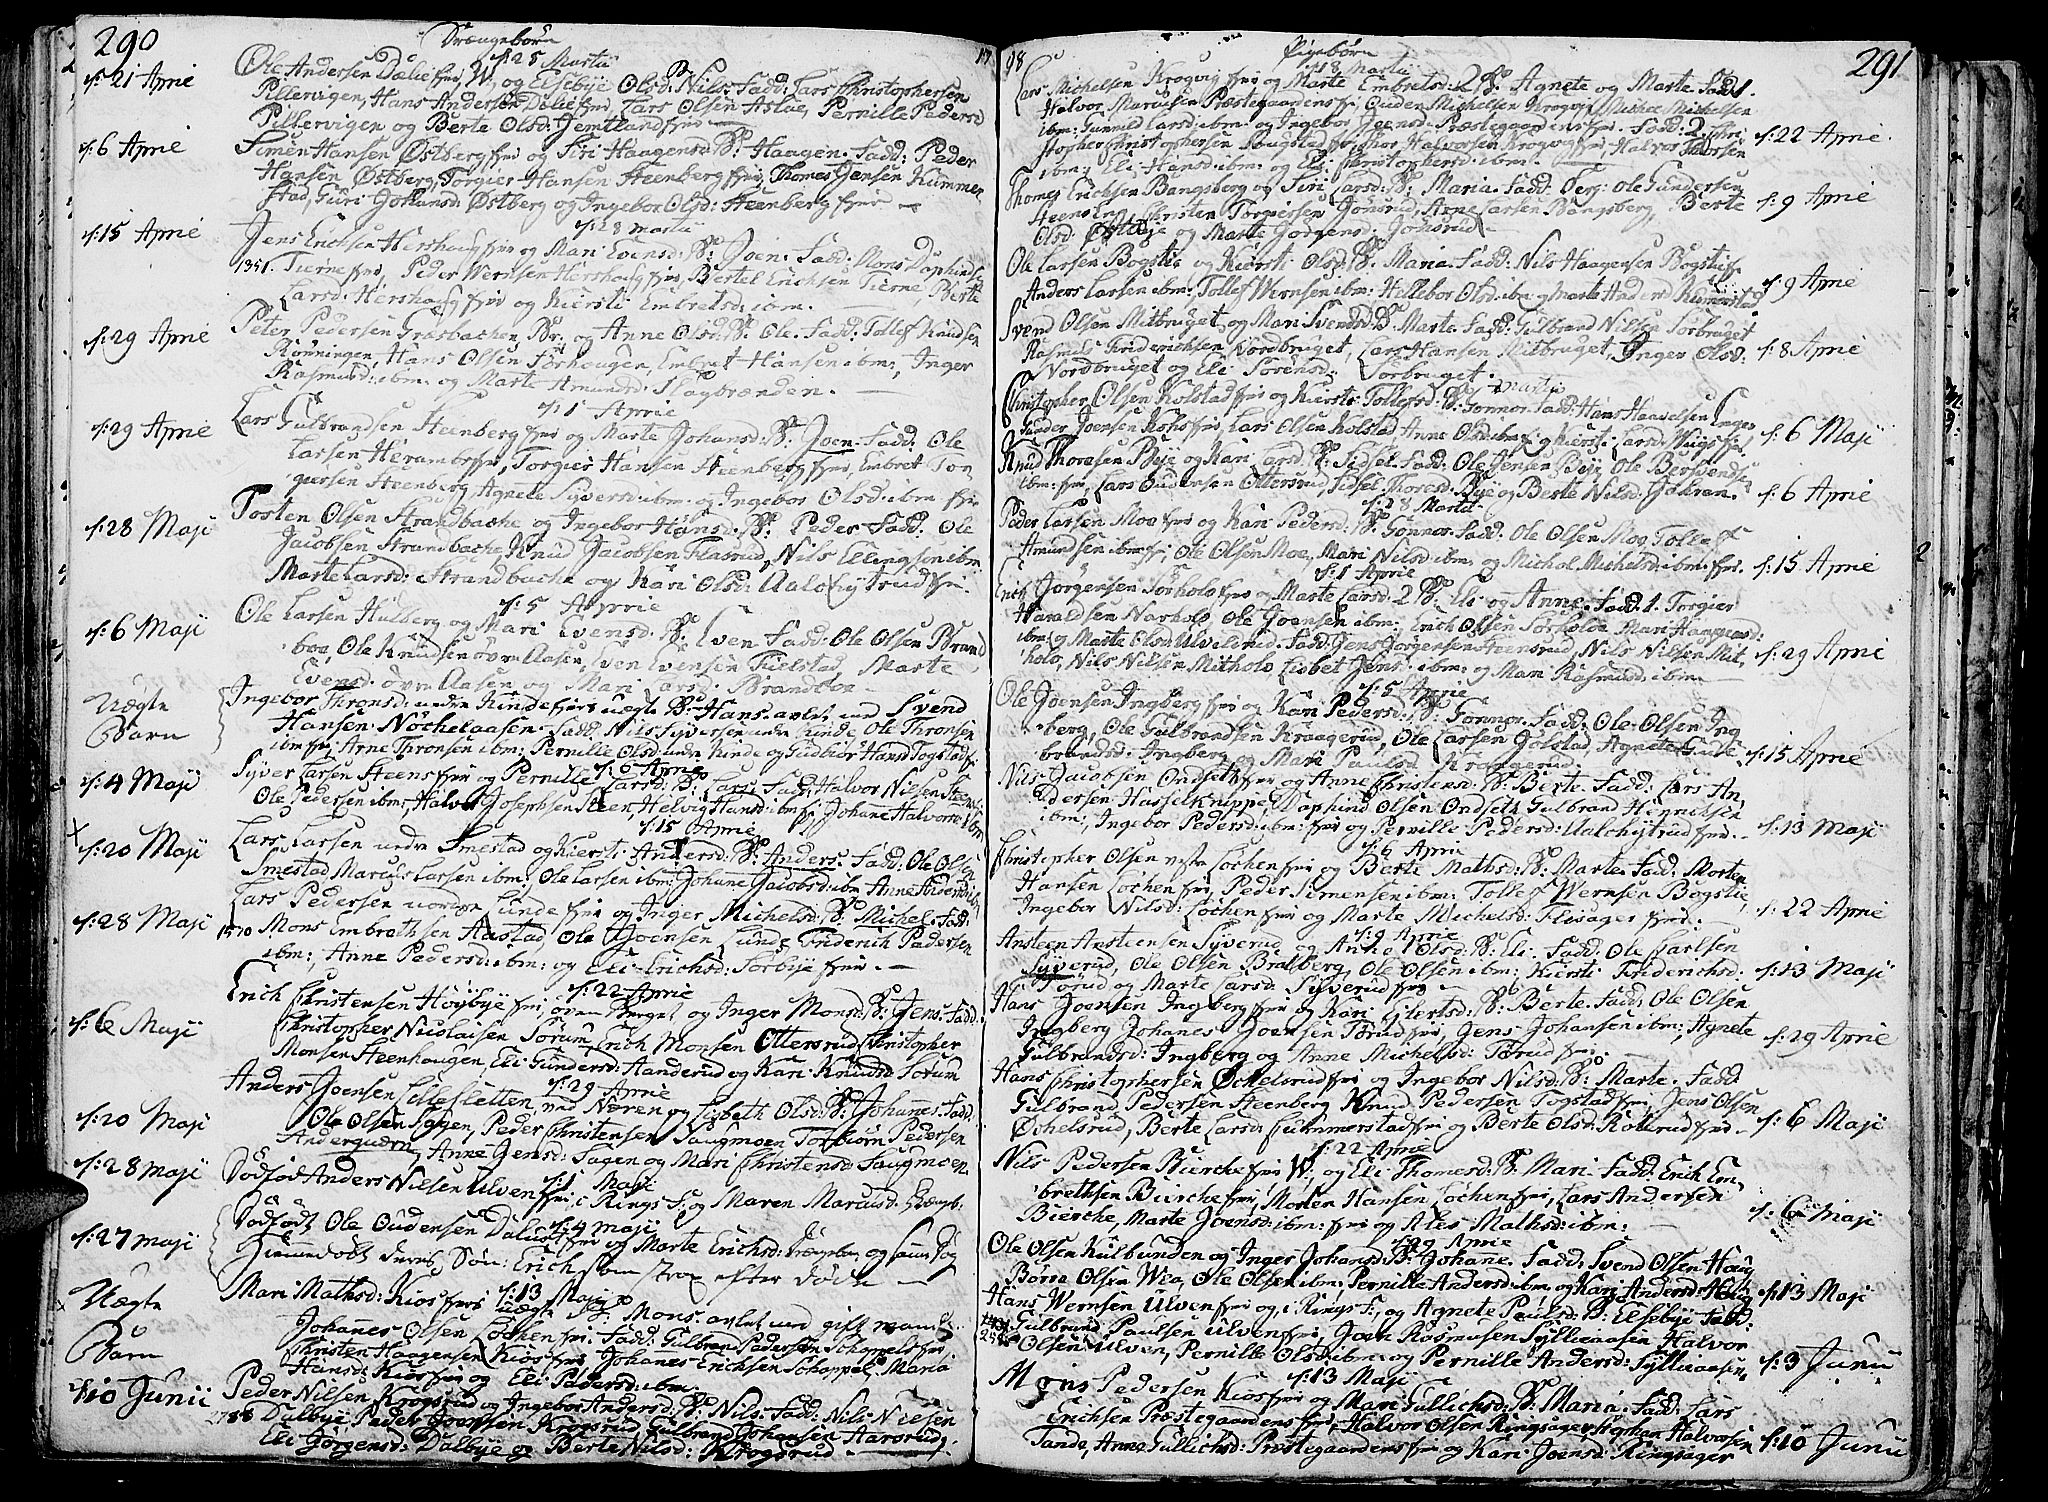 290 Drængebørn 17
d: 25 Martii
d: 21 April
Ole Andersen Dælie fini, W. og Elsebye Olsd: B: Nils. Fadd: Lars Christophersen
Pellervigen, Hans Andersen Dælie fini, Lars Olsen Aslac, Pernille Pedersd
Pillervigen og Berte Olsd: Jemtland fini
d: 6 April
Simen Hansen Østberg fini og Siri Haagensd: B: Haagen. Fadd: Peder
Hansen Østberg, Torgier Hansen Steenberg fini, Thomes Jensen Kummer
stad, Guri Johansd: Østberg og Ingebor Olsd: Steenberg fini
d: 28 Martii
d: 15 April
Jens Erichsen Hershoug fini og Mari Evensd: B: Joen. Fadd: Mons Daphindsen
1351. Tierne fini, Peder Wernsen Hershoug fini, Bertel Erichsen Tierne, Berte
Larsd: Hershoug fini og Kiersti Embretsd: ibm.
d: 29 April
Peter Pedersen Grasbachen, Br. og Anne Olsd: B: Ole. Fadd: Tollef Knudsen
Rønningen, Hans Olsen Sørhougen, Embret Hansen ibm:, Inger
Rasmusd: ibm. og Marte Amundsd: Slagbrænden.
d: 1 April
d: 29 April
Lars Gulbrandsen Steenberg fini og Marte Johansd: B: Joen. Fadd: Ole
Larsen Heramb fini, Torgier Hansen Steenberg fini, Embret Tor
giersen Steenberg, Agnete Syversd: ibm. og Ingebor Olsd: ibm fini
d: 28 Maji
Tosten Olsen Strandbache og Ingebor Hansd: B: Peder. Fadd: Ole
Jacobsen Strandbache, Knud Jacobsen Flasrud, Nils Ellingsen ibm.
Marte Larsd: Strandbache og Kari Olsd: Aalochytrud fini.
d: 5 Aprie
d: 6 Maji
Ole Larsen Hulberg og Mari Evensd: B: Even. Fadd: Ole Olsen Brand
boe, Ole Knudsen øvre Aasen, Even Evensen Tielstad, Marte
Evensd: øvre Aasen og Mari Larsd: Brandboe
Uægte
Barn
Ingebor Thronsd: nedre Kinde fini uægte B: Hans. avlet ved Svend
Hansen Nøchelaasen. Fadd: Nils Syversen nedre Kinde, Ole Thronsen
ibm fini, Arne Thronsen ibm: Pernille Olsd: nedre Kinde og Gudbiør Hansd: Togstad fini
d: 6 Aprie
d: 4 Maji
Syver Larsen Steens fini og Pernille Larsd: B: Lars. Fadd: Halvor Nilsen Steens
Ole Pedersen ibm:, Halvor Josephsen Steen, Helvig Hansd: ibm fini, Johanne Halvorsd: ibm
d: 15 Aprie
d: 20 Maji
Lars Larsen nedre Smestad og Kiersti Andersd: B: Anders. Fadd: Ole Olsen
Smestad, Marcus Larsen ibm:, Ole Larsen ibm: Johanne Jacobsd: ibm Anne Andersd: ibm
d: 28 Maji
Lars Pedersen nordre Lunde fini og Inger Michelsd: B: Michel. Fadd:
1570 Mons Embrethsen Aastad, Ole Joensen Lunde, Friderich Pedersen
ibm:, Anne Pedersd: ibm: og Eli Erichsd: Sørbye fini.
d: 22 Aprie
d: 6 Maji
Erich Christensen Høybye fini, oven Berget og Inger Monsd: B: Jens. Fadd:
Christopher Nicolaisen Sorum, Erich Monsen Ottersrud, Christopher
Monsen Steenhaugen, Eli Gundersd: Handerud og Kari Knudsd: Sorum
d: 29 Aprie
d: 20 Maji
Anders Joensen Lillesletten, ved Næren og Lisbeth Olsd: B: Johannes. Fadd:
Ole Olsen Sagen, Peder Christensen Saugmoen, Torbiørn Pedersen
Anderquærn, Anne Jensd: Sagen og Mari Christensd: Saugmoen.
d: 1 Maji
d: 28 Maji
Dødfød Anders Nilsen Ulven fini, i Rings S: og Maren Marcusd:
d: 4 Maji
d: 27 Maji
Dødfødt Ole Oudensen Dalust fini og Marte Erichsd: Drængebarn og samme Dag
Hiemmedøbt deres Søn: Erich, som strax efter døde
d: 13 Maji
Uægte
Barn
Mari Mathsd: Kios fini uægte B: Mons. avlet ved gift mand
Johannes Olsen Løchen fini. Fadd: Gulbran Pedersen Schoppels fini
Christen Haagensen Kios fini, Johanes Erichsen Schoppel, Maria
Hansd: Kios fini og Eli Pedersd: ibm
d: 10 Junii
Peder Nilsen Krogsrud og Ingebor Andersd: B: Nils. Fadd: Nils Nielsen
2788 Dalbye, Peder Joensen Krogsrud, Gulbrand Johansen Aarsrud,
Eli Jørgensd: Dalbye og Berte Nilsd: Krogsrud
98 Pigebørn 291
d: 18 Martii
Lars Michelsen Krogvig fini og Marte Embretsd: 2 B: Agnete og Marte. Fadd 1.
Halvor Marcusen Præstegaardens fi, Ouden Michelsen Krogvig, Michel Michelsen
ibm: Gunnild Larsd: ibm. og Ingebor Joensd: Præstegaardens fi. Fadd: 2. Chri
stopher Christophersen Bougstad fi, Thor Halvorsen Krogvig fi, Halvor Thorsen
ibm: Eli Hansd: ibm. og Eli Christophersd: ibm.
d: 22 Aprie
Thomes Erichsen Bangsberg og Siri Larsd: B: Maria. Fadd: Serg: Ole Gundersen
Steens Eng, Christen Tormersen Jønsrud, Arne Larsen Bangsberg, Berte
Olsd: Østbye og Marte Jørgensd: Jønsrud
d: 9 Aprie
Ole Larsen Bogstie og Kiersti Olsd: B: Maria. Fadd: Nils Haagensen Bogstie fi.
Anders Larsen ibm: Tollef Wernsen ibm: Hellebor Olsd: ibm og Marte Andersd: Kummerstad
d: 9 Aprie
Svend Olsen Mitbruget og Mari Svendsd: B: Marte. Fadd: Gulbrand Nilsen Sorbruget
Rasmus Friderichsen Nordbruget, Lars Hansen Mitbruget, Inger Olsd:
Nordbruget og Eli Sorensd: Sorbruget.
d: 8 Aprie
Martii
Christopher Olsen Kolstad fini og Kiersti Tollefsd: B: Gonnor. Fadd: Hans Haavelsen Enger
Gunder Joensen Kohs fini, Lars Olsen Kolstad, Anne Olsd: ibm fi og Kiersti Larsd: Wiigs fi.
d: 6 Maji
Knud Thoresen Bye og Kari Larsd: B: Sidsel. Fadd: Ole Jensen Bye, Ole Bersvendsen
ibm: fini, Lars Oudensen Ottersrud, Sidsel Thoresd: Bye og Berte Nilsd: Johren.
d: 6 Aprie
d: 28 Martii
Peder Larsen Moe fini og Kari Pedersd: B: Gonnor. Fadd: Ole Olsen Moe, Tollef
Amundsen ibm: fi, Ole Olsen Moe, Mari Nilsd: ibm: og Michol Michelsd: ibm: fini.
d: 15 Aprie
d: 1 Aprie
Erich Jorgensen Sørholo fini og Marte Larsd: 2 B: Eli og Anne. Fadd: 1. Torgier
Haraldsen Narholo, Ole Joensen ibm: Erich Olsen Sørholoe, Mari Haagensd:
ibm: og Marte Olsd: Ulvelsrud. Fadd: Jens Jørgensen Steensrud, Nils Nilsen Mit,
holo, Nils Nilsen Mitholo, Lisbet Jensd: ibm: og Mari Rasmusd: ibm.
d: 29 Aprie
d: 5 Aprie
Ole Joensen Ingberg fini og Kari Pedersd: B: Gonnor. Fadd: Ole Olsen Ing
berg, Ole Gulbrandsen Kraagerud, Ole Larsen Jølstad, Agnete Gul
brandsd: Ingberg og Mari Paulsd: Kraagerud.
d: 15 Aprie
Nils Jacobsen Ondset fini og Anne Christensd: B: Berte. Fadd: Lars An,
dersen Hasselknippe, Daphind Olsen Ondset, Gulbrand Henrichsen
ibm:, Ingebor Pedersd: ibm: fini og Pernille Pedersd: Ualchytrud fini.
d: 13 Maji
d: 6 Aprie
Christopher Olsen vestre Løchen fini og Berte Mathsd: B: Marte. Fadd: Morten
Hansen Løchen fini, Peder Simensen ibm: Tollef Wernsen Bogstie,
Ingebor Nilsd: Løchen fini og Marte Michelsd: Flisager fini.
d: 22 Aprie
d: 9 Aprie
Ansteen Ansteensen Syverud og Anne Olsd: B: Eli. Fadd: Ole Carlsen
Syverud, Ole Olsen Bratberg, Ole Olsen ibm: Kiersti Friderichsd:
Torud og Marte Larsd: Syverud fini
d: 13 Maji
Hans Joensen Ingberg fini og Kari Eilertsd: B: Berte. Fadd: Ole Olsen
Ingberg, Johanes Joensen Torud fini, Jens Johansen ibm:, Agnete
Gulbrandsd: Ingberg og Anne Michelsd: Torud fini.
d: 29 Aprie
Hans Christophersen Øchelsrud fini og Ingebor Nilsd: B: Marte. Fadd
Gulbrand Pedersen Steenberg, Knud Pedersen Togstad fini, Jens Olsen
Øchelsrud, Berte Larsd: Lummerstad fini og Berte Olsd: Roterud fini.
d: 6 Maji
d: 22 Aprie
Nils Pedersen Bierche fini W: og Eli Thomesd: B: Mari. Fadd: Erich Em
brethsen Bierche fini, Morten Hansen Løchen fini, Lars Andersen
Bierche, Marte Joensd: ibm: fini og Ales Mathsd: ibm:
d: 6 Maji
d: 29 Aprie
Ole Olsen Kulbunden og Inger Johansd: B: Johanne. Fadd: Svend Olsen Houg
Børre Olsen Weo, Ole Olsen ibm: Pernille Andersd: ibm og Kari Andersd: Houg
d: 13 Maji
Hans Wernsen Ulven fini og, i Rings S:, og Agnete Paulsd: B: Elsebye. Fadd:
Gulbrand Paulsen Ulven fini, Joen Rasmusen Sylliaasen, Halvor
Olsen Ulven, Pernille Olsd: ibm og Pernille Andersd: Sylliaasen
d: 3 Junii
d: 13 Maji
Mons Pedersen Kios fini og Mari Gullichsd: B: Maria. Fadd: Lars
Erichsen Præstegaardens fini, Halvor Olsen Ringsager, Stephen Halvorsen
Tande, Anne Gullichsd: Præstegaardens fini og Kari Joensd: Ringsager
d: 10 Junii